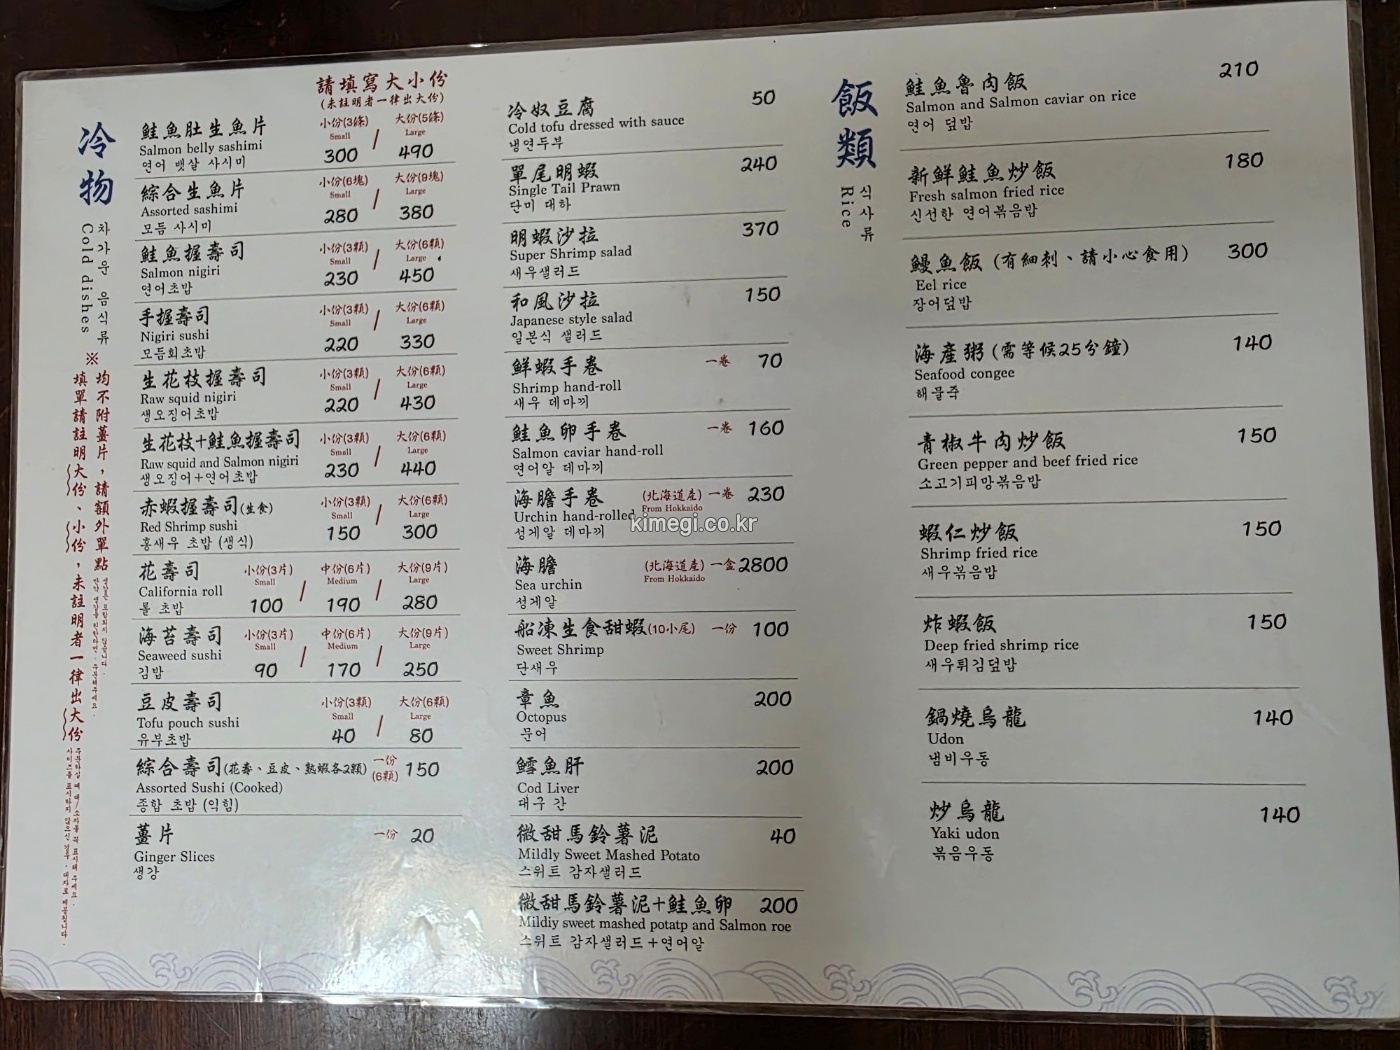 請填寫大小份
(未註明者一律出大份)
冷物
차가운 음식류
Cold dishes
※均不附薑片，請額外單點
填單請註明大份、小份，未註明者一律出大份
鮭魚肚生魚片 小份(3條) / 大份(5條)
Salmon belly sashimi Small Large
연어 뱃살 사시미 300 490
綜合生魚片 小份(6塊) / 大份(9塊)
Assorted sashimi Small Large
모듬 사시미 280 380
鮭魚握壽司 小份(3顆) / 大份(6顆)
Salmon nigiri Small Large
연어초밥 230 450
手握壽司 小份(3顆) / 大份(6顆)
Nigiri sushi Small Large
모듬회초밥 220 330
生花枝握壽司 小份(3顆) / 大份(6顆)
Raw squid nigiri Small Large
생오징어초밥 220 430
生花枝+鮭魚握壽司 小份(3顆) / 大份(6顆)
Raw squid and Salmon nigiri Small Large
생오징어+연어초밥 230 440
赤蝦握壽司(生食) 小份(3顆) / 大份(6顆)
Red Shrimp sushi Small Large
홍새우 초밥 (생식) 150 300
花壽司 小份(3片) / 中份(6片) / 大份(9片)
California roll Small Medium Large
롤 초밥 100 190 280
海苔壽司 小份(3片) / 中份(6片) / 大份(9片)
Seaweed sushi Small Medium Large
김밥 90 170 250
豆皮壽司 小份(3顆) / 大份(6顆)
Tofu pouch sushi Small Large
유부초밥 40 80
綜合壽司(花壽、豆皮、熟蝦各2顆) 一份(6顆) 150
Assorted Sushi (Cooked)
종합 초밥 (익힘)
薑片 一份 20
Ginger Slices
생강
冷奴豆腐 50
Cold tofu dressed with sauce
냉연두부
單尾明蝦 240
Single Tail Prawn
단미 대하
明蝦沙拉 370
Super Shrimp salad
새우샐러드
和風沙拉 150
Japanese style salad
일본식 샐러드
鮮蝦手卷 一卷 70
Shrimp hand-roll
새우 데마끼
鮭魚卵手卷 一卷 160
Salmon caviar hand-roll
연어알 데마끼
海膽手卷 (北海道産) 一卷 230
Urchin hand-rolled From Hokkaido
성게알 데마끼
kimegi.co.kr
海膽 (北海道産) 一盒 2800
Sea urchin From Hokkaido
성게알
船凍生食甜蝦(10小尾) 一份 100
Sweet Shrimp
단새우
章魚 200
Octopus
문어
鱈魚肝 200
Cod Liver
대구 간
微甜馬鈴薯泥 40
Mildly Sweet Mashed Potato
스위트 감자샐러드
微甜馬鈴薯泥+鮭魚卵 200
Mildiy sweet mashed potatp and Salmon roe
스위트 감자샐러드+연어알
飯類
식사류
Rice
鮭魚魯肉飯 210
Salmon and Salmon caviar on rice
연어 덮밥
新鮮鮭魚炒飯 180
Fresh salmon fried rice
신선한 연어볶음밥
鰻魚飯 (有細刺、請小心食用) 300
Eel rice
장어덮밥
海産粥 (需等候25分鐘) 140
Seafood congee
해물죽
青椒牛肉炒飯 150
Green pepper and beef fried rice
소고기피망볶음밥
蝦仁炒飯 150
Shrimp fried rice
새우볶음밥
炸蝦飯 150
Deep fried shrimp rice
새우튀김덮밥
鍋燒烏龍 140
Udon
냄비우동
炒烏龍 140
Yaki udon
볶음우동